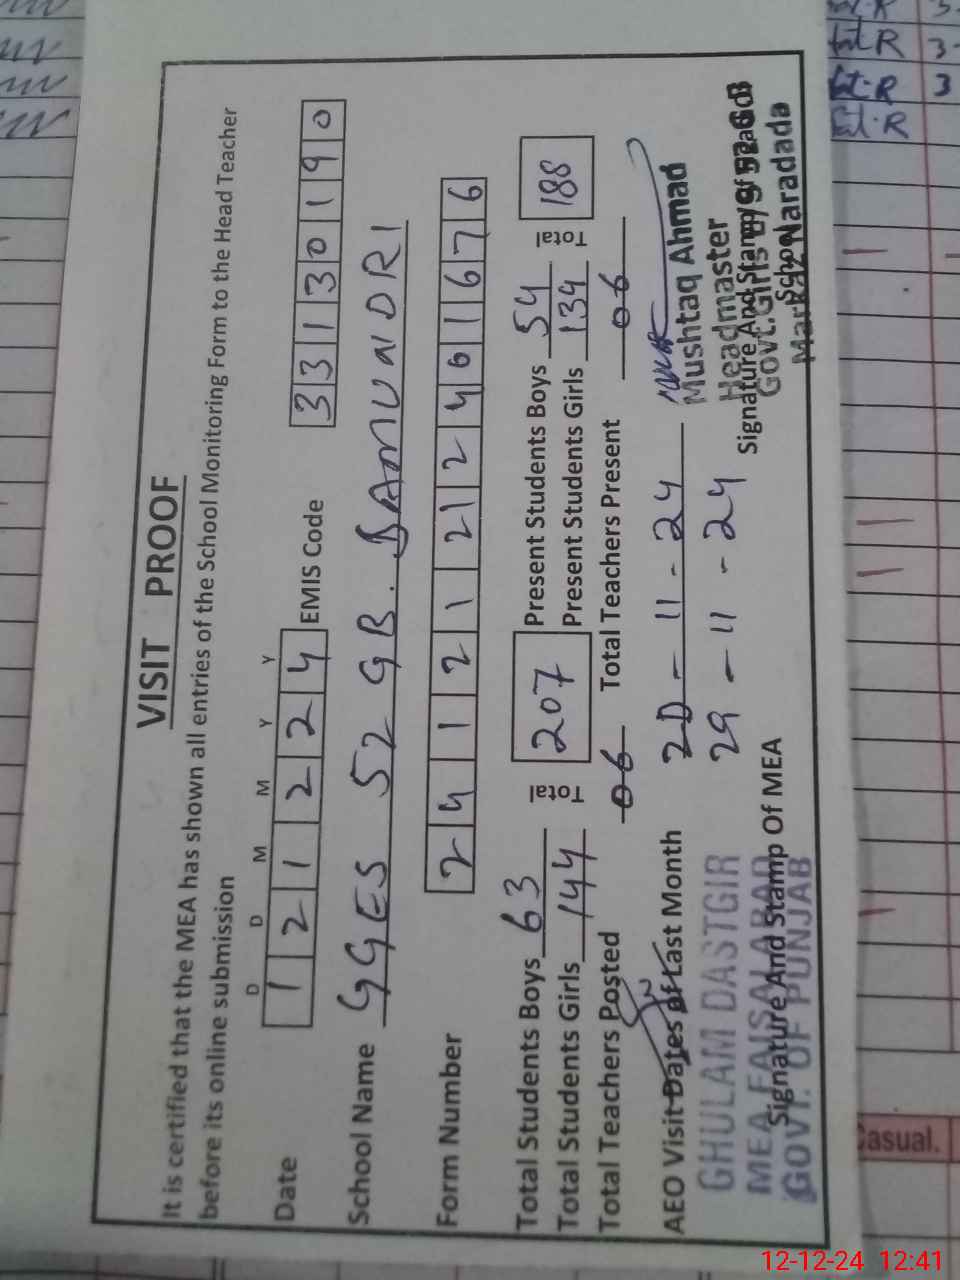 VISIT PROOF
It is certified that the MEA has shown all entries of the School Monitoring Form to the Head Teacher
before its online submission
D D M M Y Y
Date 1 2 1 2 2 4 EMIS Code 3 3 1 3 0 1 9 0
School Name GGES 52 GB. BAMUNDRI
Form Number 2 4 1 1 2 1 2 1 2 4 0 1 6 7 6
Total Students Boys 63 Total 207 Present Students Boys 54 Total 188
Total Students Girls 144 Present Students Girls 134
Total Teachers Posted 06 Total Teachers Present 06
AEO Visit Dates of Last Month 20-11-24
29-11-24
Mushtaq Ahmad
Headmaster
GHULAM DASTGIR
MEA FAISALABAD
GOVT. OF PUNJAB
Signature And Stamp Of MEA
Signature And Stamp of Head of
School
Govt. Girls 52 GB
Markaz Naradada
Casual.
12-12-24 12:41